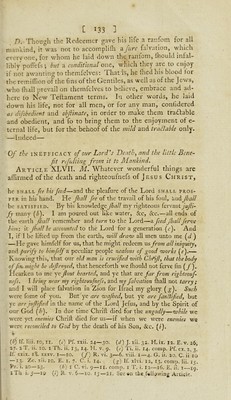 [ 133 ]
D. Though the Redeemer gave his life a ransom for all
mankind, it was not to accomplish a sure salvation, which
every one, for whom he laid down the ransom, should infal-
libly possess; but a conditional one, which they are to enjoy
if not awanting to themselves: That is, he shed his blood for
the remission of the sins of the Gentiles, as well as of the Jews,
who shall prevail on themselves to believe, embrace and ad-
here to New Testament terms. In other words, he laid
down his life, not for all men, or for any man, considered
as disobedient and obstinate, in order to make them tractable
and obedient, and so to bring them to the enjoyment of e-
ternal life, but for the behoof of the mild and tractable only.
—Indeed—
Of the INEFFICACY of our Lord's Death, and the little Bene-
fit resulting from it to Mankind.
ARTICLE XLVII. M. Whatever wonderful things are
affirmed of the death and righteousness of JESUS CHRIST,
he SHALL see his seed—and the pleasure of the Lord SHALL PROS-
PER in his hand. He shall see of the travail of his soul, and shall
be SATISFIED. By his knowledge shall my righteous servant justi-
fy many (b). I am poured out like water, &c, &c.—all ends of
the earth shall remember and turn to the Lord—a seed shall serve
him; it shall be accounted to the Lord for a generation (c). And
I, if I be lifted up from the earth, will draw all men unto me (d)
—He gave himself for us, that he might redeem us from all iniquity,
and purify to himself a peculiar people zealous of good works (e)—
Knowing this, that our old man is crucified with Christ, that the body
of sin might be destroyed, that henceforth we should not serve sin (f).
Hearken to me ye stout hearted, and ye that are far from righteous-
ness. I bring near my righteousness, and my salvation shall not tarry;
and I will place salvation in Zion for Israel my glory (g). Such
were some of you. But ye are washed, but ye are sanctified, but
ye are justified in the name of the Lord Jesus, and by the Spirit of
our God (h). In due time Christ died for the ungodly—while we
were yet enemies Christ died for us—if when we were enemies we
were reconciled to God by the death of his Son, &c. (i).